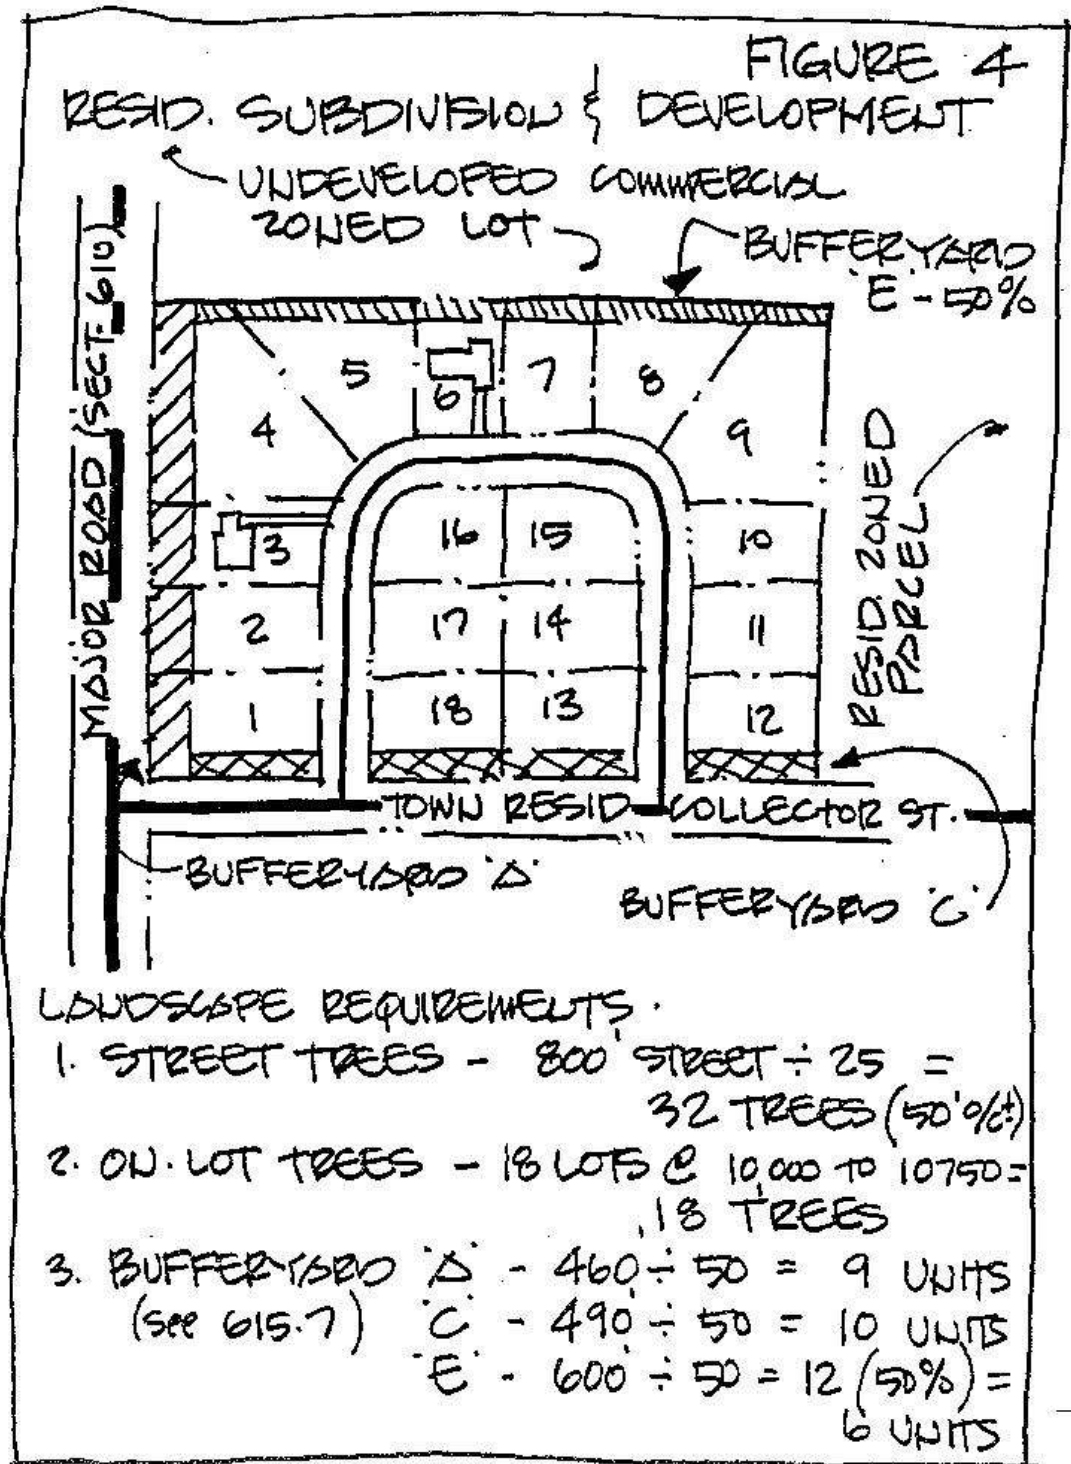 FIGURE 4
RESID. SUBDIVISION & DEVELOPMENT
UNDEVELOPED COMMERCIAL
ZONED LOT
BUFFERYARD
'E' - 50%
MAJOR ROAD (SECT. 610)
5
6
7
8
4
9
3
16
15
10
2
17
14
11
1
18
13
12
RESID. ZONED
PARCEL
TOWN RESID COLLECTOR ST.
BUFFERYARD 'A'
BUFFERYARD 'C'
LANDSCAPE REQUIREMENTS.
1. STREET TREES - 800' STREET ÷ 25 =
32 TREES (50' o/c±)
2. ON.LOT TREES - 18 LOTS @ 10,000 TO 10750=
18 TREES
3. BUFFERYARD 'A' - 460 ÷ 50 = 9 UNITS
(See 615.7) 'C' - 490 ÷ 50 = 10 UNITS
'E' - 600 ÷ 50 = 12 (50%) =
6 UNITS